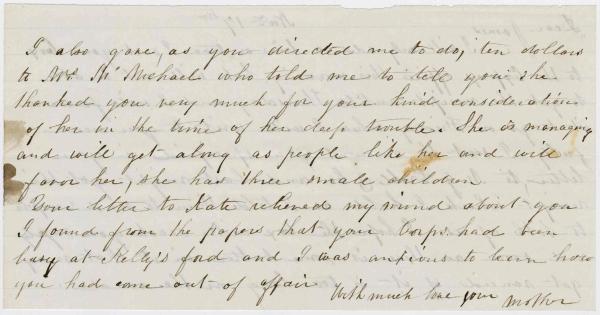 I also gave, as you directed me to do, ten dollars
to Mrs. McMichael who told me to tell you she
thanked you very much for your kind consideration
of her in the time of her deep trouble. She is managing
and will get along as people like her and will
favor her, she has three small children
Your letter to Kate relieved my mind about you
I found from the papers that your Corps had been
busy at Kelly's ford and I was anxious to learn how
you had come out of affair
With much love your mother